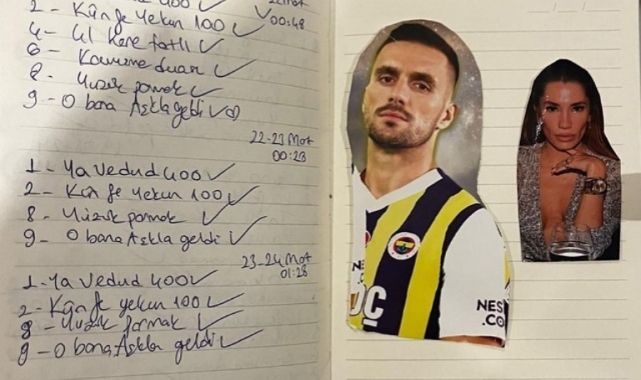 2 - Kün fe yekün 100 ✓
00:48
4 - 41 kere fatli ✓
6 - Kavuşma duası ✓
8 - Yüzük parmak ✓
9 - O bana Aşkla geldi ✓
22-23 Mart
00:23
1 - Ya Vedud 400 ✓
2 - Kün fe yekun 100 ✓
8 - Yüzük parmak ✓
9 - O bana Aşkla geldi ✓
23-24 Mart
01:28
1 - Ya Vedud 400 ✓
2 - Kün fe yekun 100 ✓
8 - Yüzük parmak ✓
9 - O bana Aşkla geldi ✓
NES
.CO